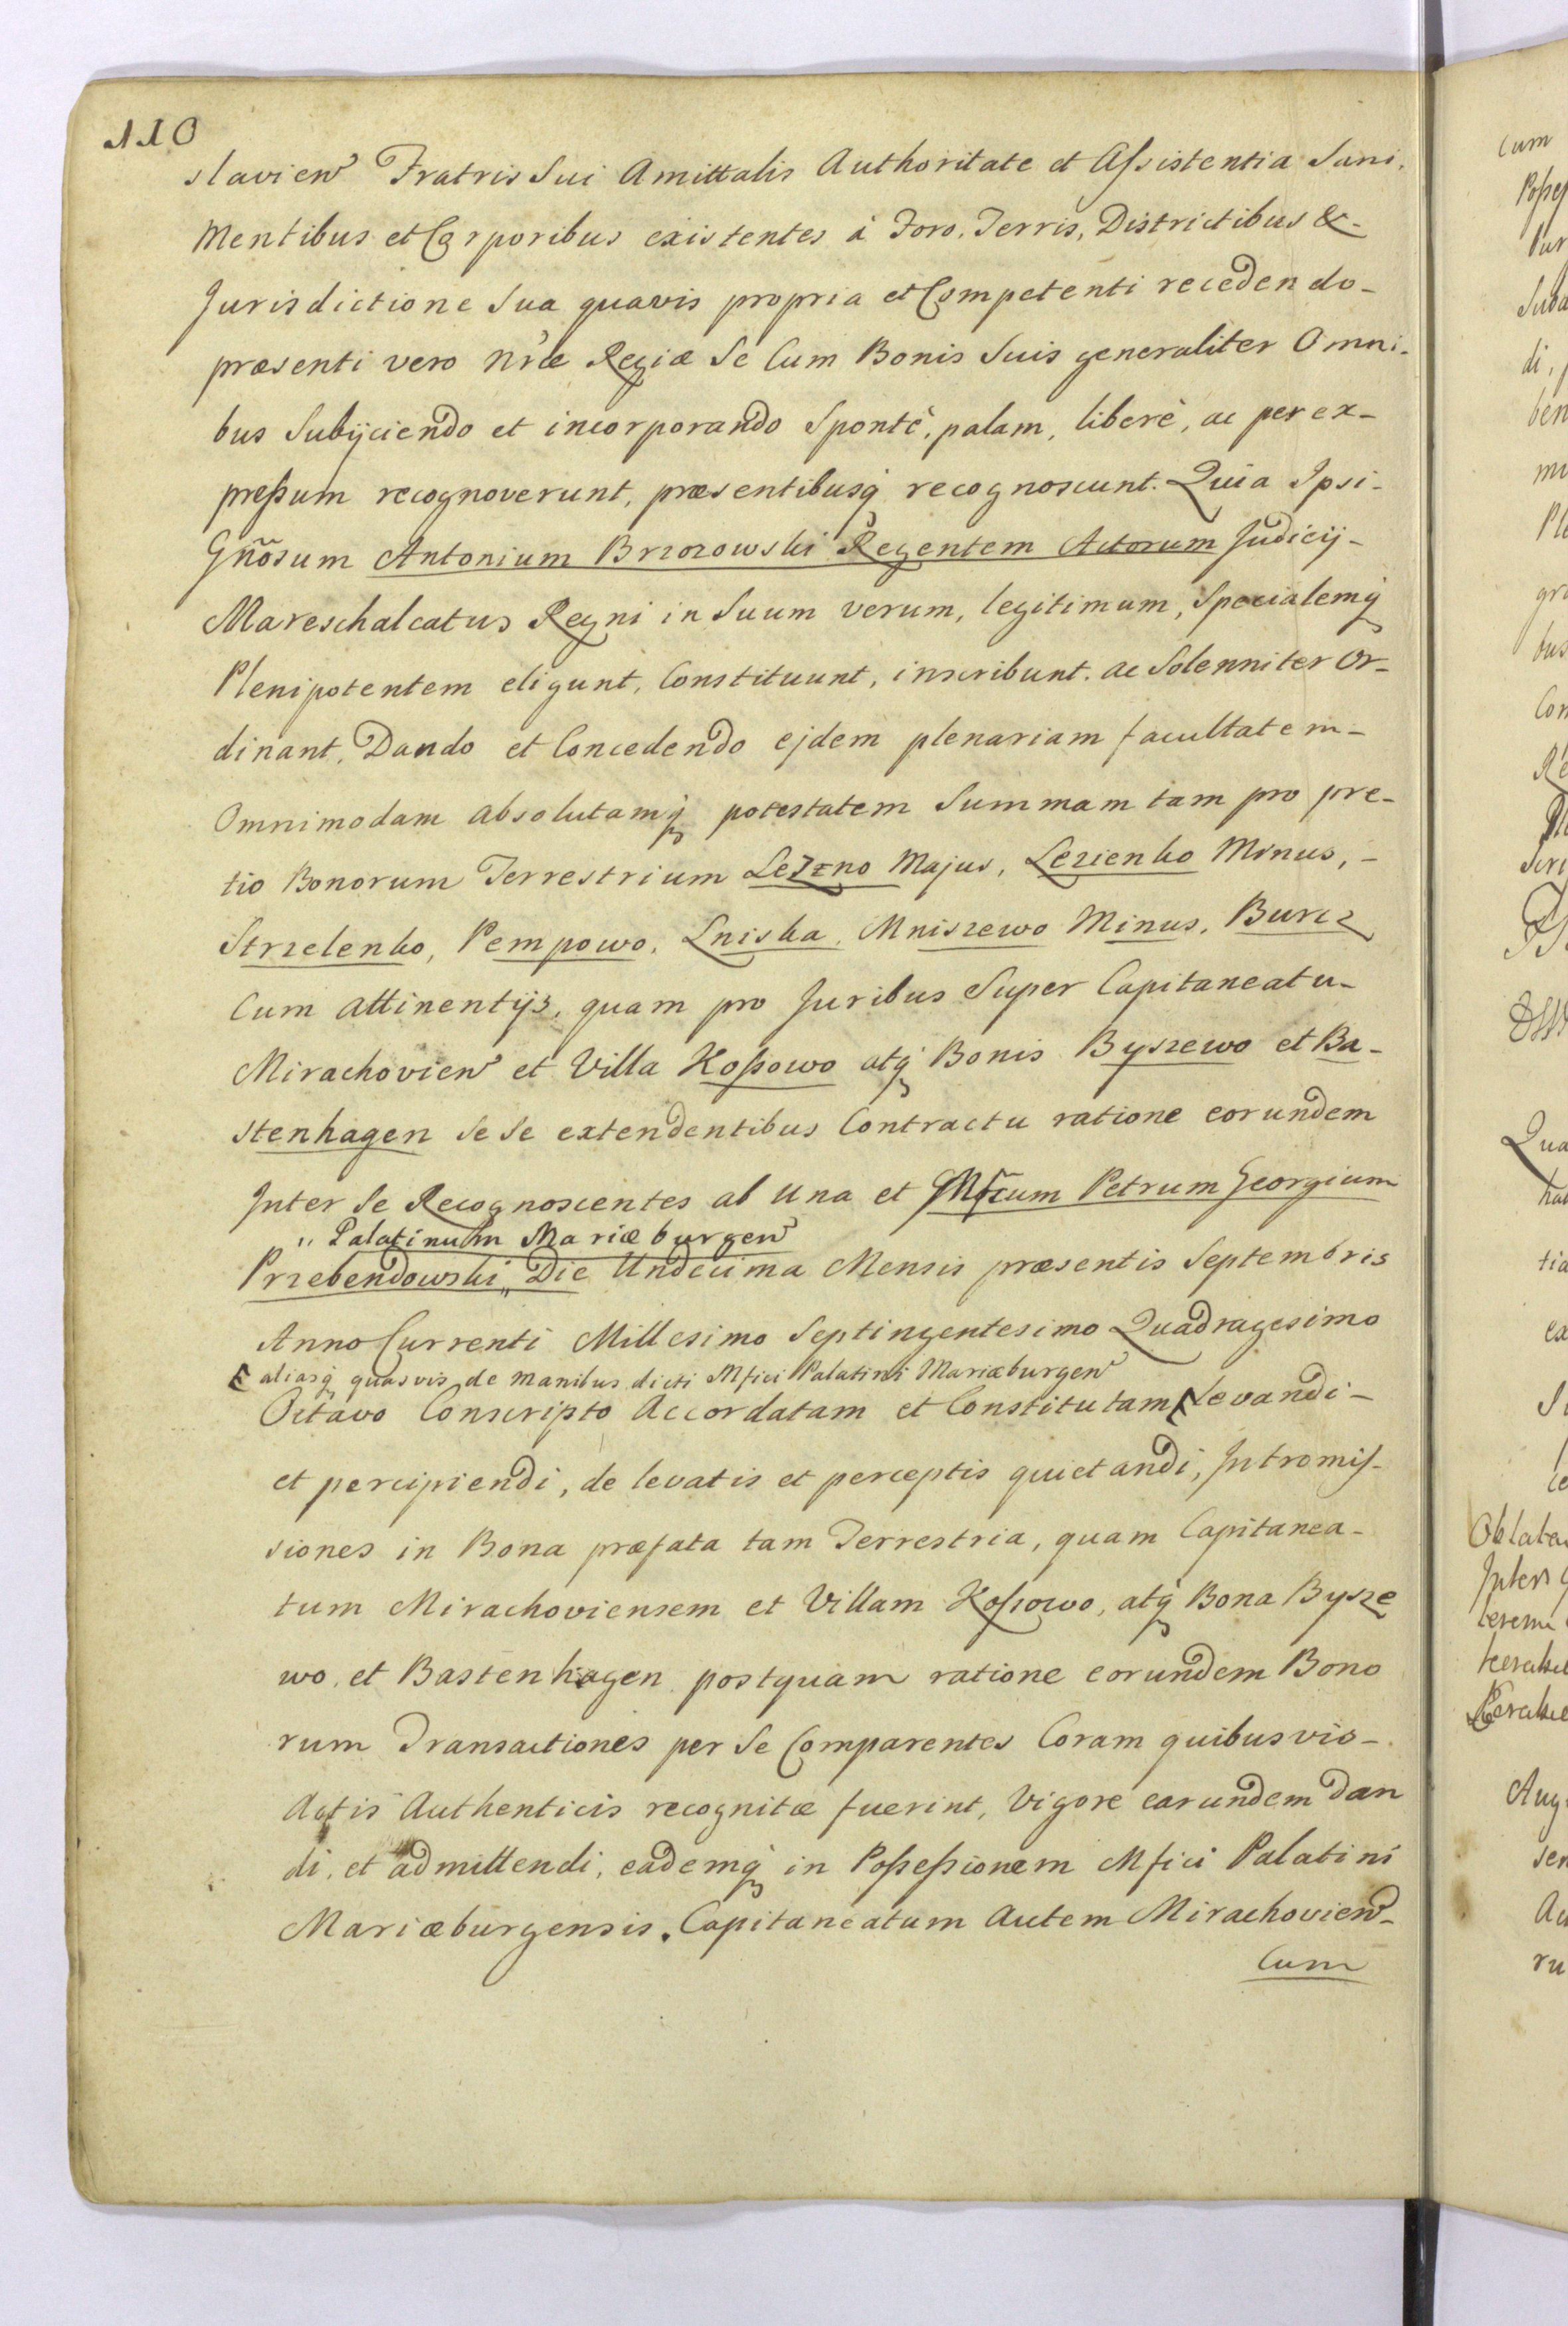 110
slavien Fratris Sui Amittalis Authoritate et Assistentia Sani
Mentibus et Corporibus existentes à Foro, Terris, Districtibus &
Jurisdictione Sua quavis propria et Competenti recedendo-
præsenti vero Nræ Regiæ Se Cum Bonis Suis generaliter Omni-
bus Subijciendo et incorporando Spontè, palam, liberè, ac per ex-
pressum recognoverunt, præsentibusq recognoscunt. Quia Ipsi-
Gñosum Antonium Brzozowski Regentem Actorum Judicij-
Mareschalcatus Regni in Suum verum, legitimum, Specialemq
Plenipotentem eligunt, Constituunt, inscribunt, ac Solenniter Or-
dinant, Dando et Concedendo ejdem plenariam facultatem-
Omnimodam absolutamq potestatem Summam tam pro pre-
tio Bonorum Terrestrium Lezno Majus, Lezienko Minus,-
Strzelenko, Pempowo, Lniska, Mniszewo Minus, Burcz
Cum attinentijs, quam pro Juribus Super Capitaneatu-
Mirachovien et Villa Kossowo atq Bonis Byszewo et Ba-
stenhagen se se extendentibus Contractu ratione eorundem
Inter Se Recognoscentes ab Una et Mfcum Petrum Georgium
" Palatinum Mariæburgen
Przebendowski " Die Undecima Mensis præsentis Septembris
Anno Currenti Millesimo Septingentesimo Quadragesimo
aliasq quasvis de manibus dicti Mfici Palatini Mariæburgen
Octavo Conscripto Accordatam et Constitutam Levandi-
et percipiendi, de levatis et perceptis quietandi, Intromis-
siones in Bona præfata tam Terrestria, quam Capitanea-
tum Mirachoviensem et Villam Kossowo, atq Bona Bysze
wo, et Bastenhagen postquam ratione eorundem Bono
rum Transactiones per Se Comparentes Coram quibusvis-
Actis Authenticis recognitæ fuerint, Vigore earundem dan
di, et admittendi, eademq in Possessionem Mfici Palatini
Mariæburgensis, Capitaneatum Autem Mirachovien-
Cum